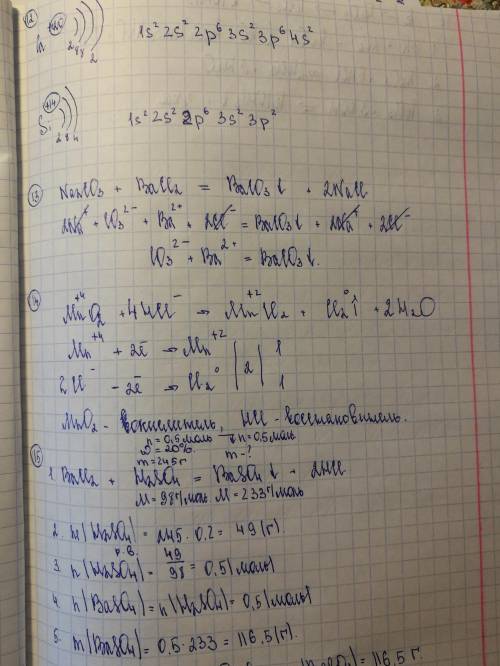 12 +25 1s² 2s² 2p⁶ 3s² 3p⁶ 4s²
2 8 8 2
+14
Si 1s² 2s² 2p⁶ 3s² 3p²
2 8 4
13 Na₂CO₃ + BaCl₂ = BaCO₃↓ + 2NaCl
2Na⁺ + CO₃²⁻ + Ba²⁺ + 2Cl⁻ = BaCO₃↓ + 2Na⁺ + 2Cl⁻
CO₃²⁻ + Ba²⁺ = BaCO₃↓.
14 Mn⁺⁴O₂ + 4HCl⁻ → Mn⁺²Cl₂ + Cl₂⁰↑ + 2H₂O
Mn⁺⁴ + 2ē → Mn⁺² | 2 | 1
2Cl⁻ - 2ē → Cl₂⁰ | 1
MnO₂ - окислитель, HCl - восстановитель.
n = 0,5 моль n = 0,5 моль
ω = 20%. m - ?
m = 245 г
15 1. BaCl₂ + H₂SO₄ = BaSO₄↓ + 2HCl
M = 98 г/моль M = 233 г/моль
2. m(H₂SO₄) = 245 · 0,2 = 49 (г).
р.в.
3. n(H₂SO₄) = 49/98 = 0,5 (моль)
4. n(BaSO₄) = n(H₂SO₄) = 0,5 (моль)
5. m(BaSO₄) = 0,5 · 233 = 116,5 (г).
= 116,5 г.